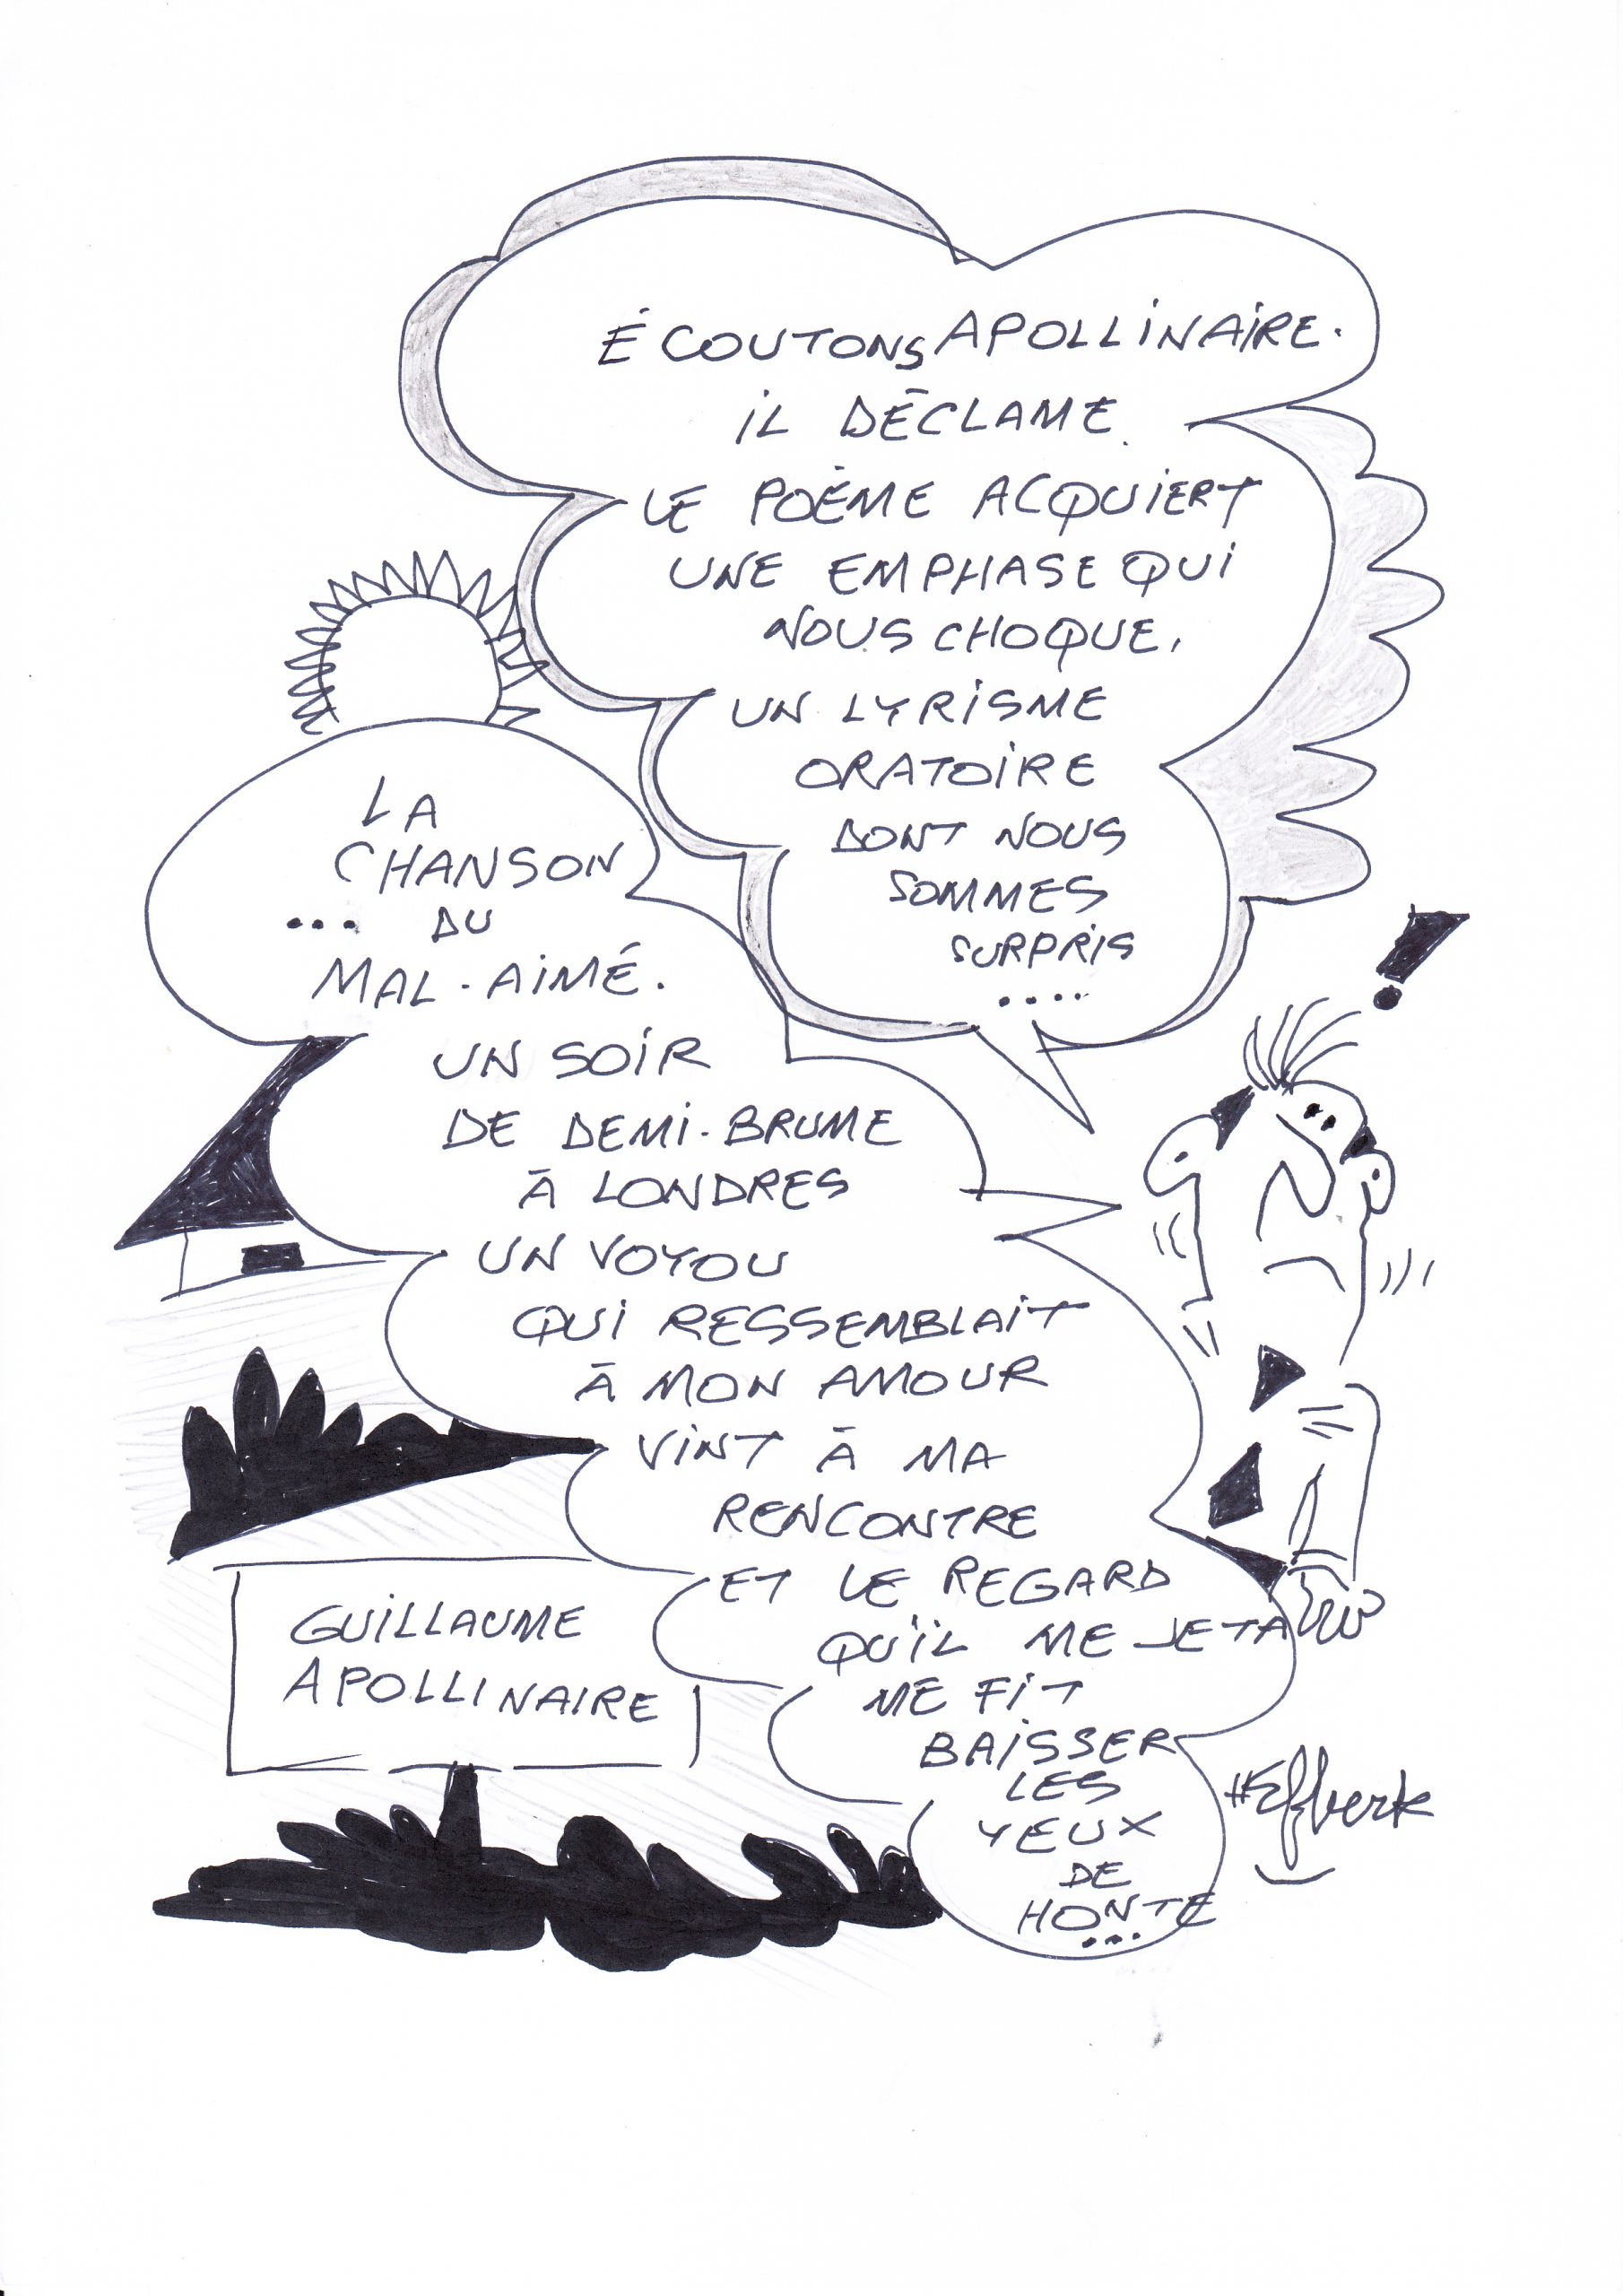 ÉCOUTONS APOLLINAIRE.
IL DÉCLAME.
LE POÈME ACQUIERT
UNE EMPHASE QUI
NOUS CHOQUE,
UN LYRISME
ORATOIRE
DONT NOUS
SOMMES
SURPRIS
....
LA
CHANSON
... DU
MAL-AIMÉ.
UN SOIR
DE DEMI-BRUME
À LONDRES
UN VOYOU
QUI RESSEMBLAIT
À MON AMOUR
VINT À MA
RENCONTRE
ET LE REGARD
QU'IL ME JETA
ME FIT
BAISSER
LES
YEUX
DE
HONTE
...
GUILLAUME
APOLLINAIRE
!